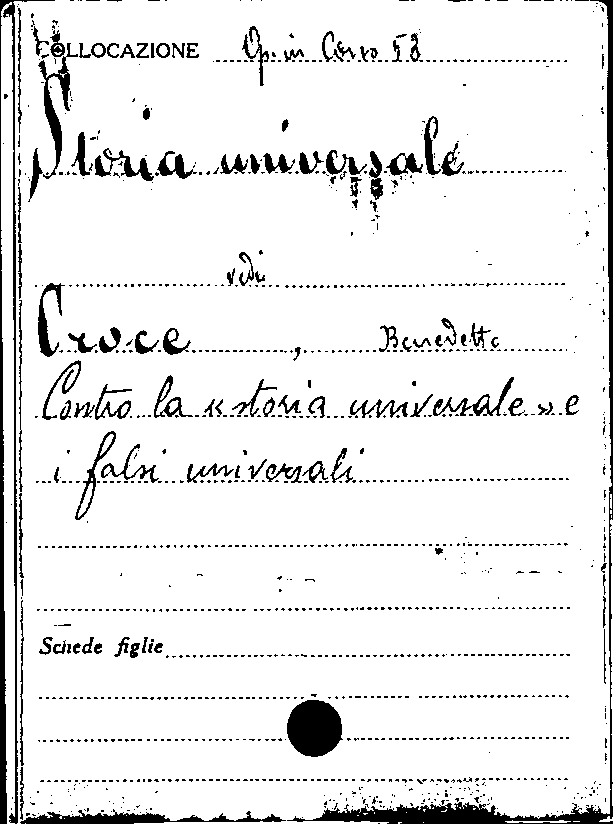 COLLOCAZIONE Op. in Corso 58
Storia universale
vedi
Croce, Benedetto
Contro la «storia universale» e
i falsi universali
Schede figlie